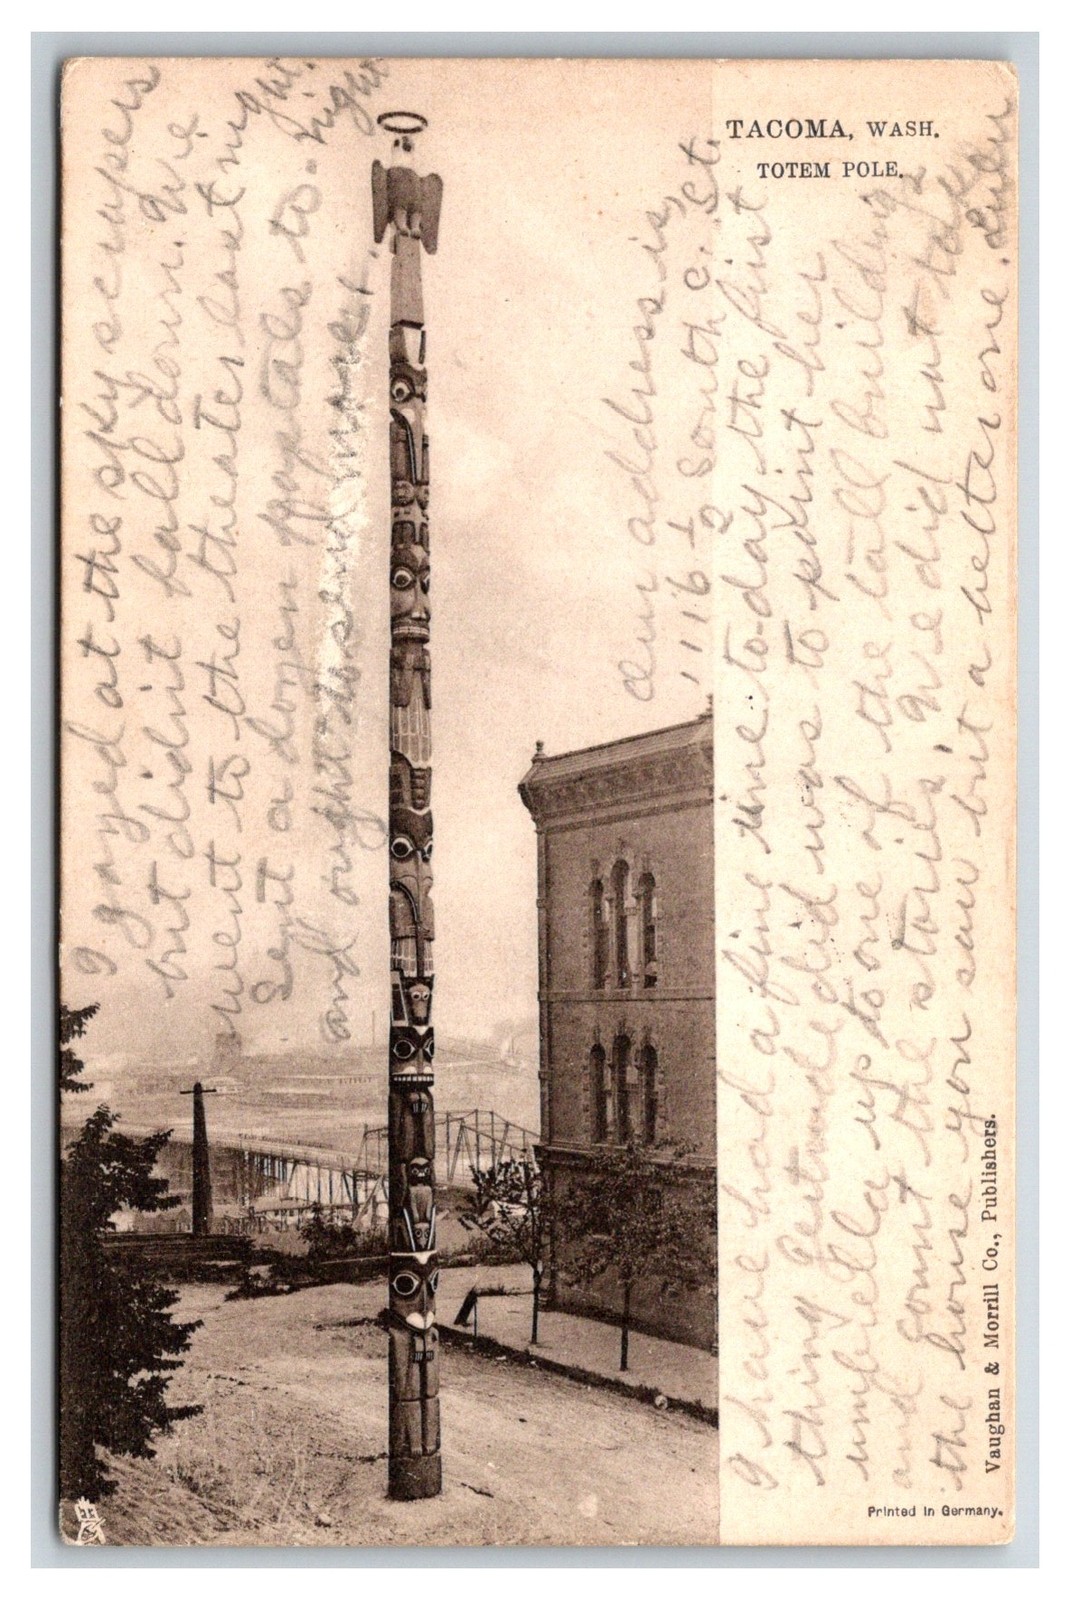 TACOMA, WASH.
TOTEM POLE.
I have had a fine time to-day. the first
thing Gertrude did was to point her
umbrella up to one of the tall buildings
and count the stories. We did not take
the house you saw but a better one.
Our address is,
1116 1/2 South C. St.
I gazed at the sky scrapers
but didnit fall down. We
went to the theater last night.
Sent a dozen postals to-night
and ought to send more.
Vaughan & Morrill Co., Publishers.
Printed in Germany.